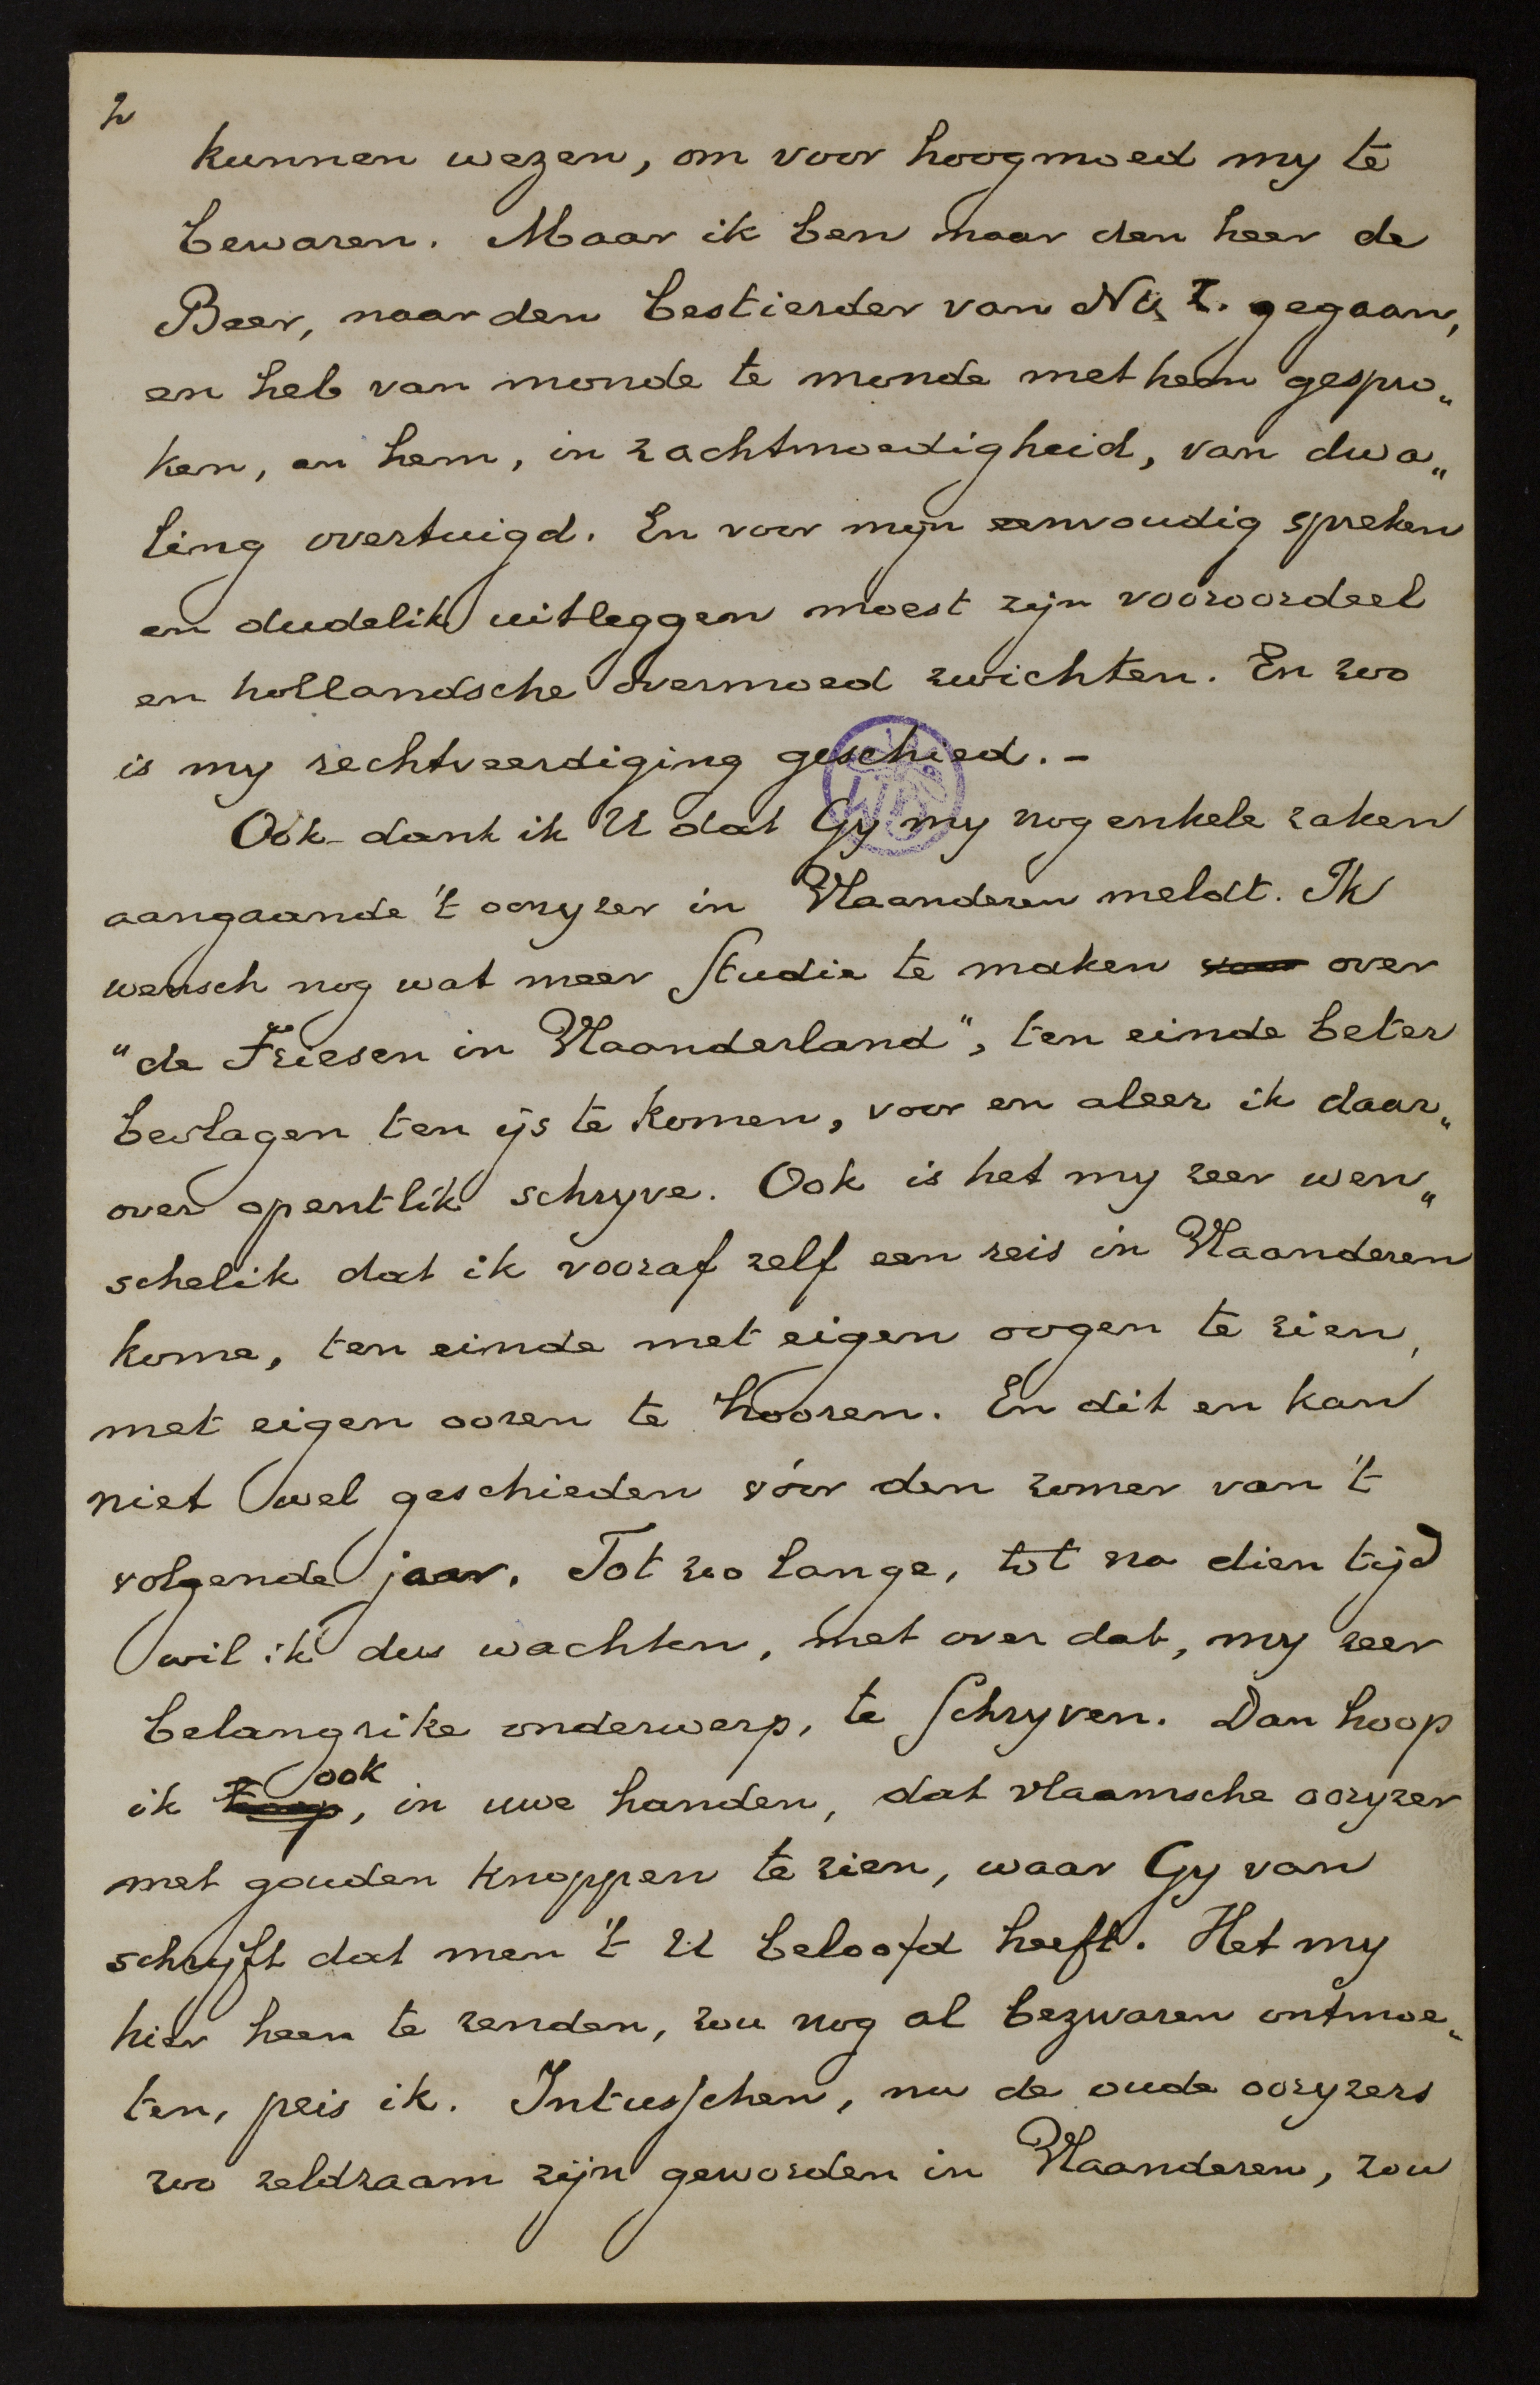 2
kunnen wezen, om voor hoogmoed my te
bewaren. Maar ik ben naar den heer de
Beer, naar den bestierder van N. & Z. gegaan,
en heb van monde te monde met hem gespro„
ken, en hem, in zachtmoedigheid, van dwa„
ling overtuigd. En voor mijn eenvoudig spreken
en dudelik uitleggen moest zijn vooroordeel
en hollandsche overmoed zwichten. En zoo
is my rechtveerdiging geschied. –
Ook dank ik U dat Gy my nog enkele zaken
aangaande 't ooryzer in Vlaanderen meldt. Ik
wensch nog wat meer studie te maken voor over
"de Friesen in Vlaanderland", ten einde beter
beslagen ten ijs te komen, voor en aleer ik daar„
over opentlik schryve. Ook is het my zeer wen„
schelik dat ik vooraf zelf een reis in Vlaanderen
kome, ten einde met eigen oogen te zien,
met eigen ooren te hooren. En dit en kan
niet wel geschieden vóór den zomer van 't
volgende jaar. Tot zoo lange, tot na dien tijd
wil ik dus wachten, met over dat, my zeer
belangrike onderwerp, te schryven. Dan hoop
ook
ik hoop, in uwe handen, dat vlaamsche ooryzer
met gouden knoppen te zien, waar Gy van
schrijft dat men 't U beloofd heeft. Het my
hier heen te zenden, zou nog al bezwaren ontmoe„
ten, peis ik. Intusschen, nu de oude ooryzers
zoo zeldzaam zijn geworden in Vlaanderen, zou